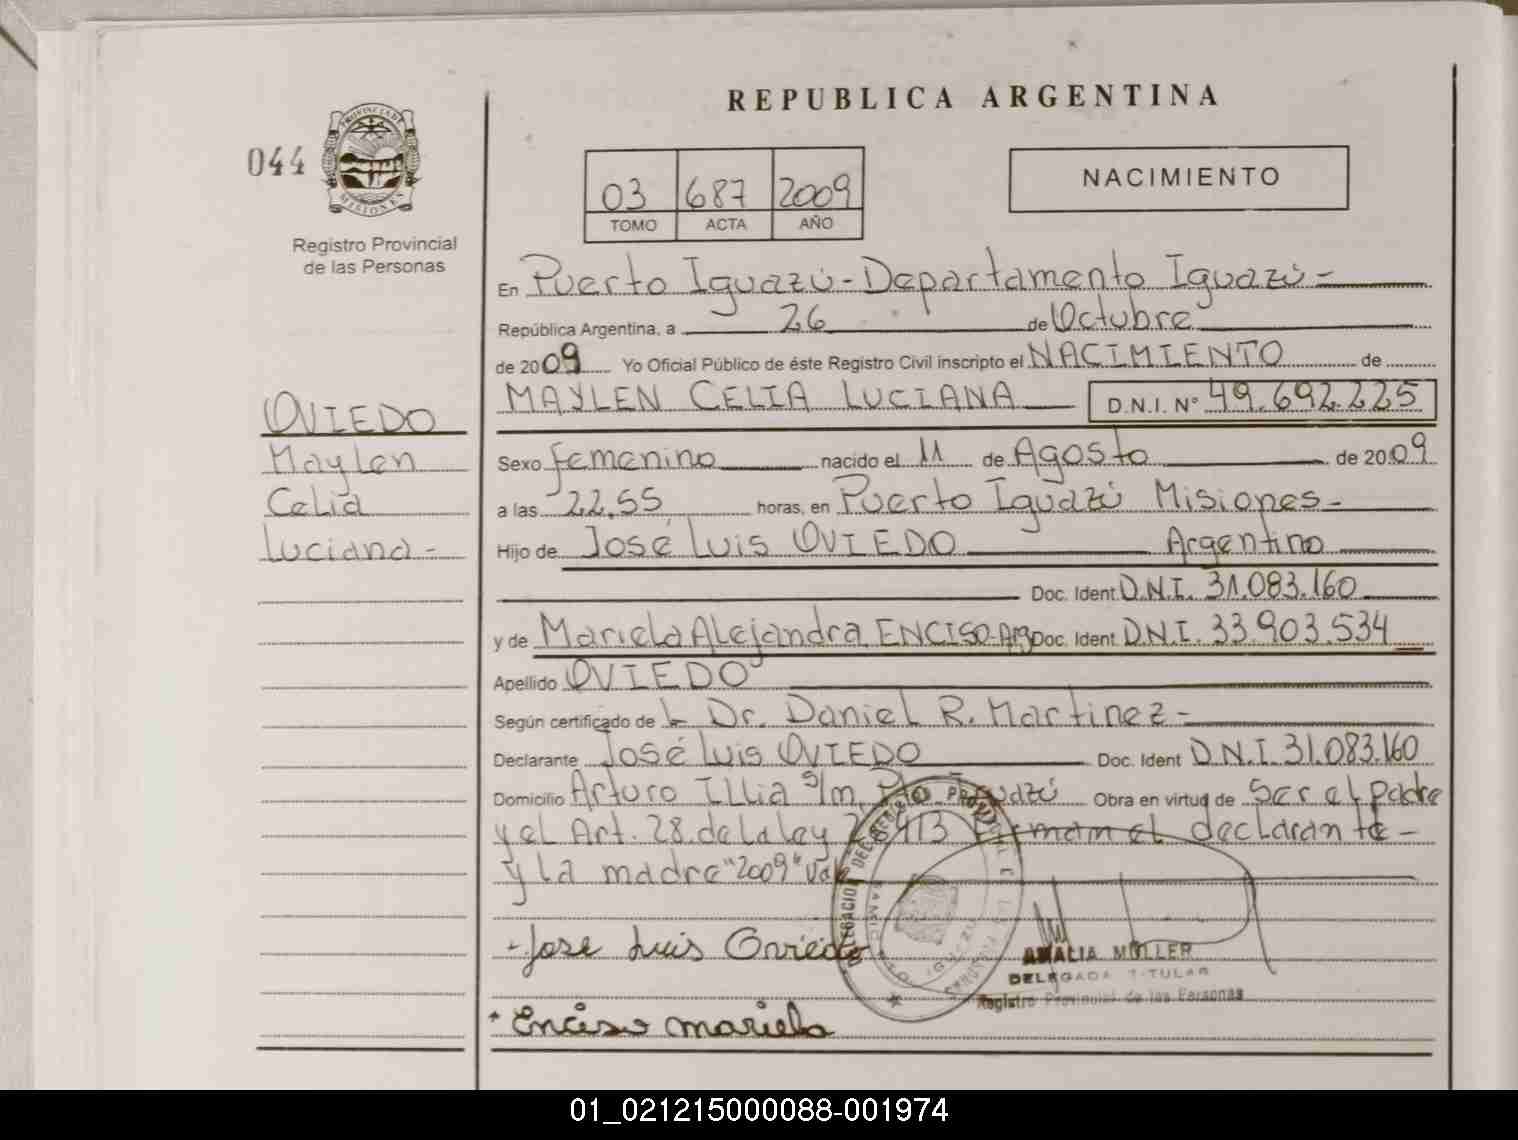 REPUBLICA ARGENTINA
044
PROVINCIA DE
MISIONES
Registro Provincial
de las Personas
03 687 2009
TOMO ACTA AÑO
NACIMIENTO
En Puerto Iguazú - Departamento Iguazú -
República Argentina, a 26 de Octubre
de 2009 Yo Oficial Público de éste Registro Civil inscripto el NACIMIENTO de
MAYLEN CELIA LUCIANA D.N.I. Nº 49.692.225
OVIEDO
Maylen
Celia
Luciana -
Sexo femenino nacido el 11 de Agosto de 2009
a las 22,55 horas, en Puerto Iguazú Misiones -
Hijo de José Luis OVIEDO Argentino
Doc. Ident D.N.I. 31.083.160
y de Mariela Alejandra ENCISO-Arg Doc. Ident D.N.I. 33.903.534
Apellido OVIEDO
Según certificado de L Dr. Daniel R. Martinez -
Declarante José Luis OVIEDO Doc. Ident D.N.I. 31.083.160
Domicilio Arturo Illia s/n, Pto Iguazú Obra en virtud de Ser el padre
y el Art. 28. de La Ley 413 Firman el declarante -
y La madre "2009" Vale
Jose Luis Oviedo
AMALIA MÜLLER
DELEGADA TITULAR
Registro Provincial de las Personas
Enciso mariela
01_021215000088-001974